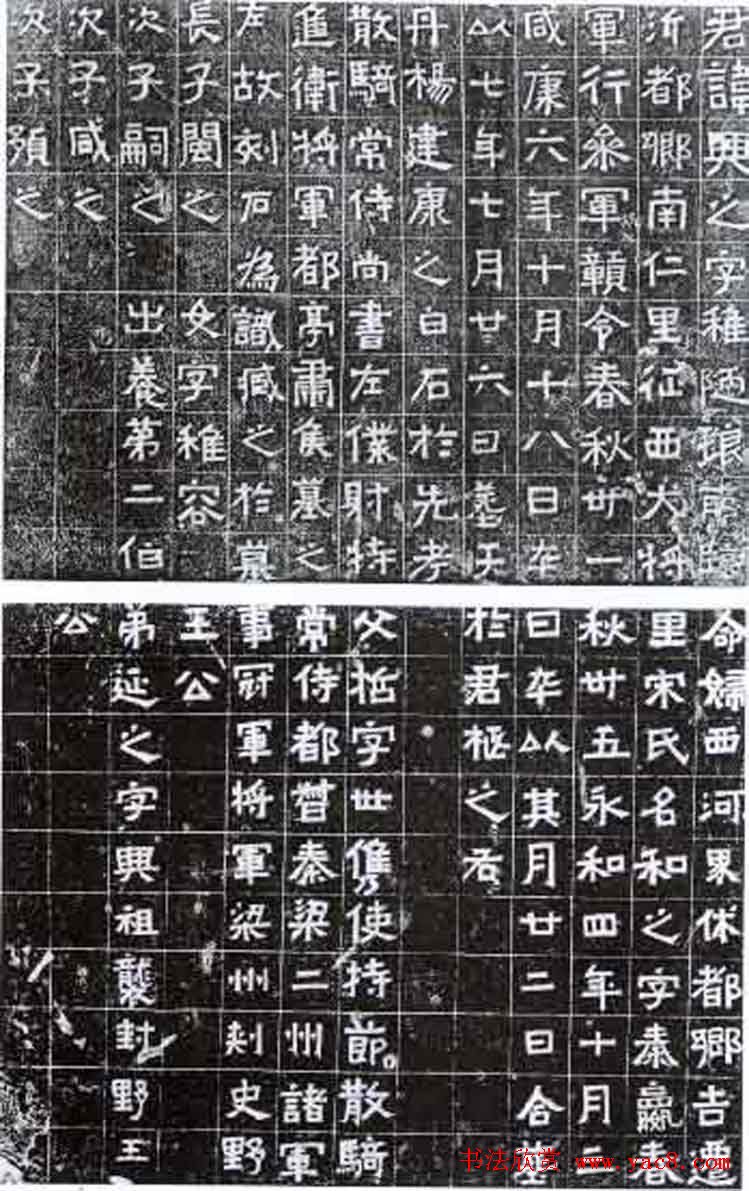 君諱興之字稚陋琅耶臨
沂都鄉南仁里征西大將
軍行參軍贛令春秋卅一
咸康六年十月十八日卒
以七年七月廿六日葬于
丹楊建康之白石於先考
散騎常侍尚書左僕射特
進衛將軍都亭肅侯墓之
左故刻石為識臧之於墓
長子閩之 女字稚容
次子嗣之 出養第二伯
次子咸之
次子預之
命婦西河界休都鄉吉遷
里宋氏名和之字秦嬴春
秋卅五永和四年十月
日卒以其月廿二日合葬
於君柩之右
父哲字世儁使持節散騎
常侍都督秦梁二州諸軍
事冠軍將軍梁州刺史野
王公
弟延之字興祖襲封野王
公
书法欣赏 www.yac8.com